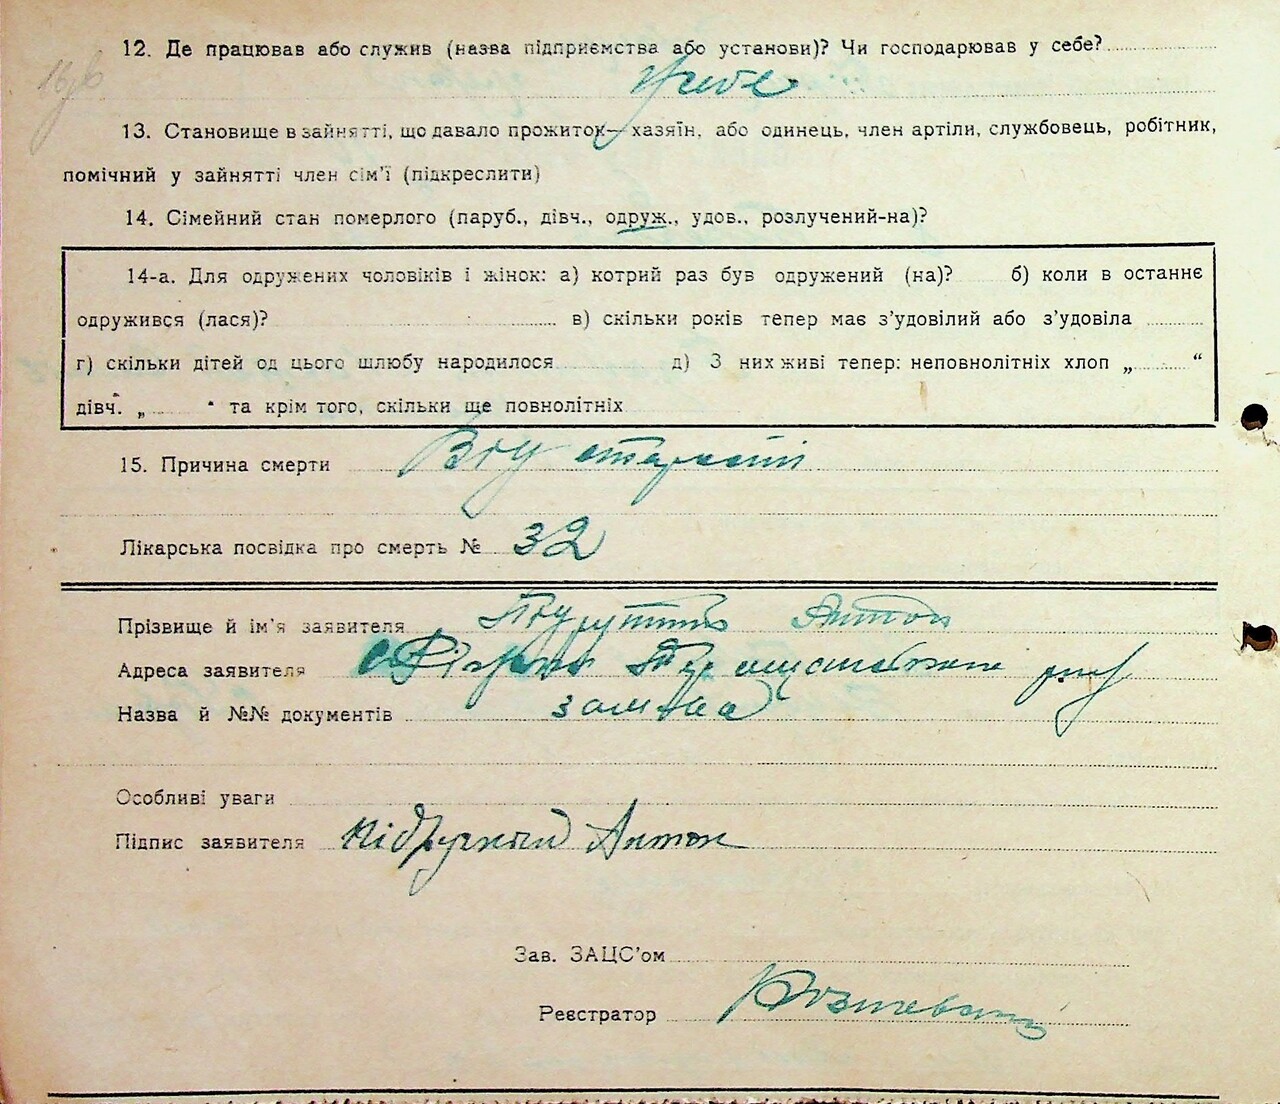 12. Де працював або служив (назва підприємства або установи)? Чи господарював у себе?
У себе
13. Становище в зайнятті, що давало прожиток—хазяїн, або одинець, член артіли, службовець, робітник,
помічний у зайнятті член сім'ї (підкреслити)
14. Сімейний стан померлого (паруб., дівч., одруж., удов., розлучений-на)?
14-а. Для одружених чоловіків і жінок: а) котрий раз був одружений (на)? б) коли в останнє
одружився (лася)? в) скільки років тепер має з'удовілий або з'удовіла
г) скільки дітей од цього шлюбу народилося д) З них живі тепер: неповнолітніх хлоп „ “
дівч. „ “ та крім того, скільки ще повнолітніх
15. Причина смерти Від старости
Лікарська посвідка про смерть № 32
Прізвище й ім'я заявителя Антон
Адреса заявителя с.
Назва й №№ документів
Особливі уваги
Підпис заявителя Підручний Антон
Зав. ЗАЦС'ом
Реєстратор